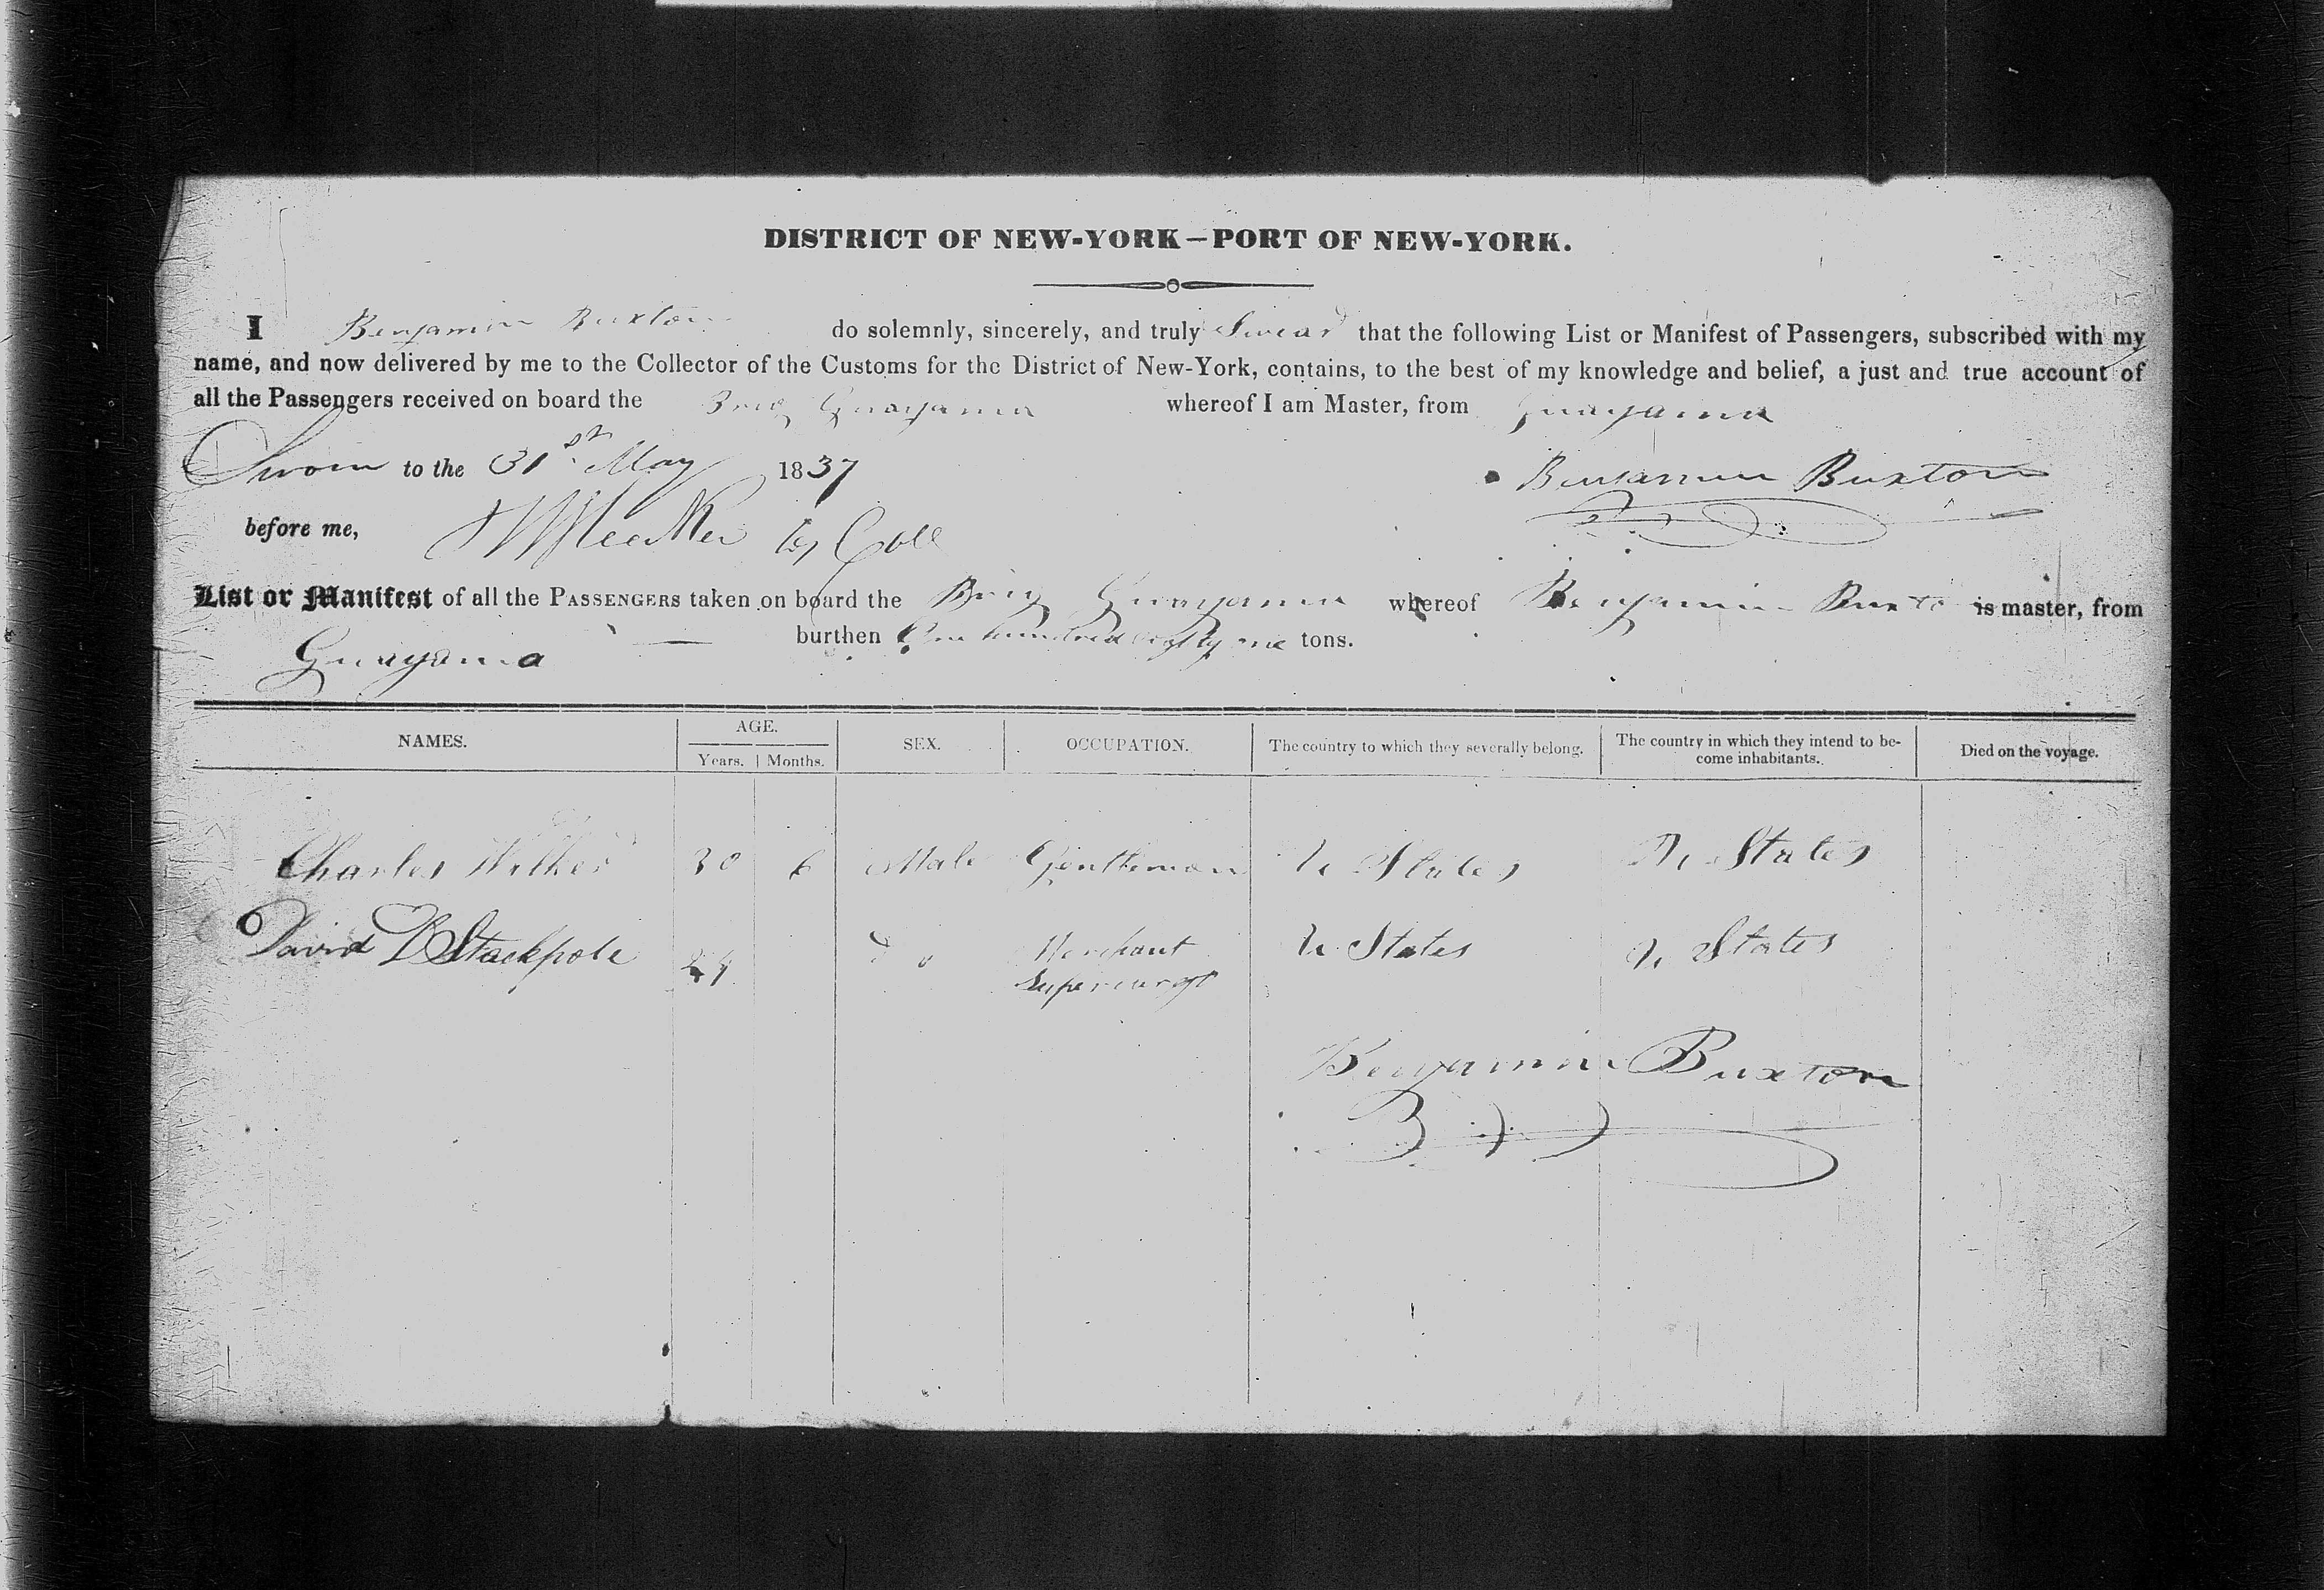 DISTRICT OF NEW-YORK—PORT OF NEW-YORK.
I Benjamin Buxton do solemnly, sincerely, and truly Swear that the following List or Manifest of Passengers, subscribed with my
name, and now delivered by me to the Collector of the Customs for the District of New-York, contains, to the best of my knowledge and belief, a just and true account of
all the Passengers received on board the Brig Guayama whereof I am Master, from Guayama
Sworn to the 31st May 1837 Benjamin Buxton
before me, Coll
List or Manifest of all the PASSENGERS taken on board the Brig Guayama whereof Benjamin Buxto is master, from
Guayama burthen One hundred one tons.
NAMES. AGE. SEX. OCCUPATION. The country to which they severally belong. The country in which they intend to be-
come inhabitants. Died on the voyage.
Years. Months.
Charles 30 6 Male Gentleman U States U States
David B Stackpole 24 do Merchant U States U States
Supercargo
Benjamin Buxton